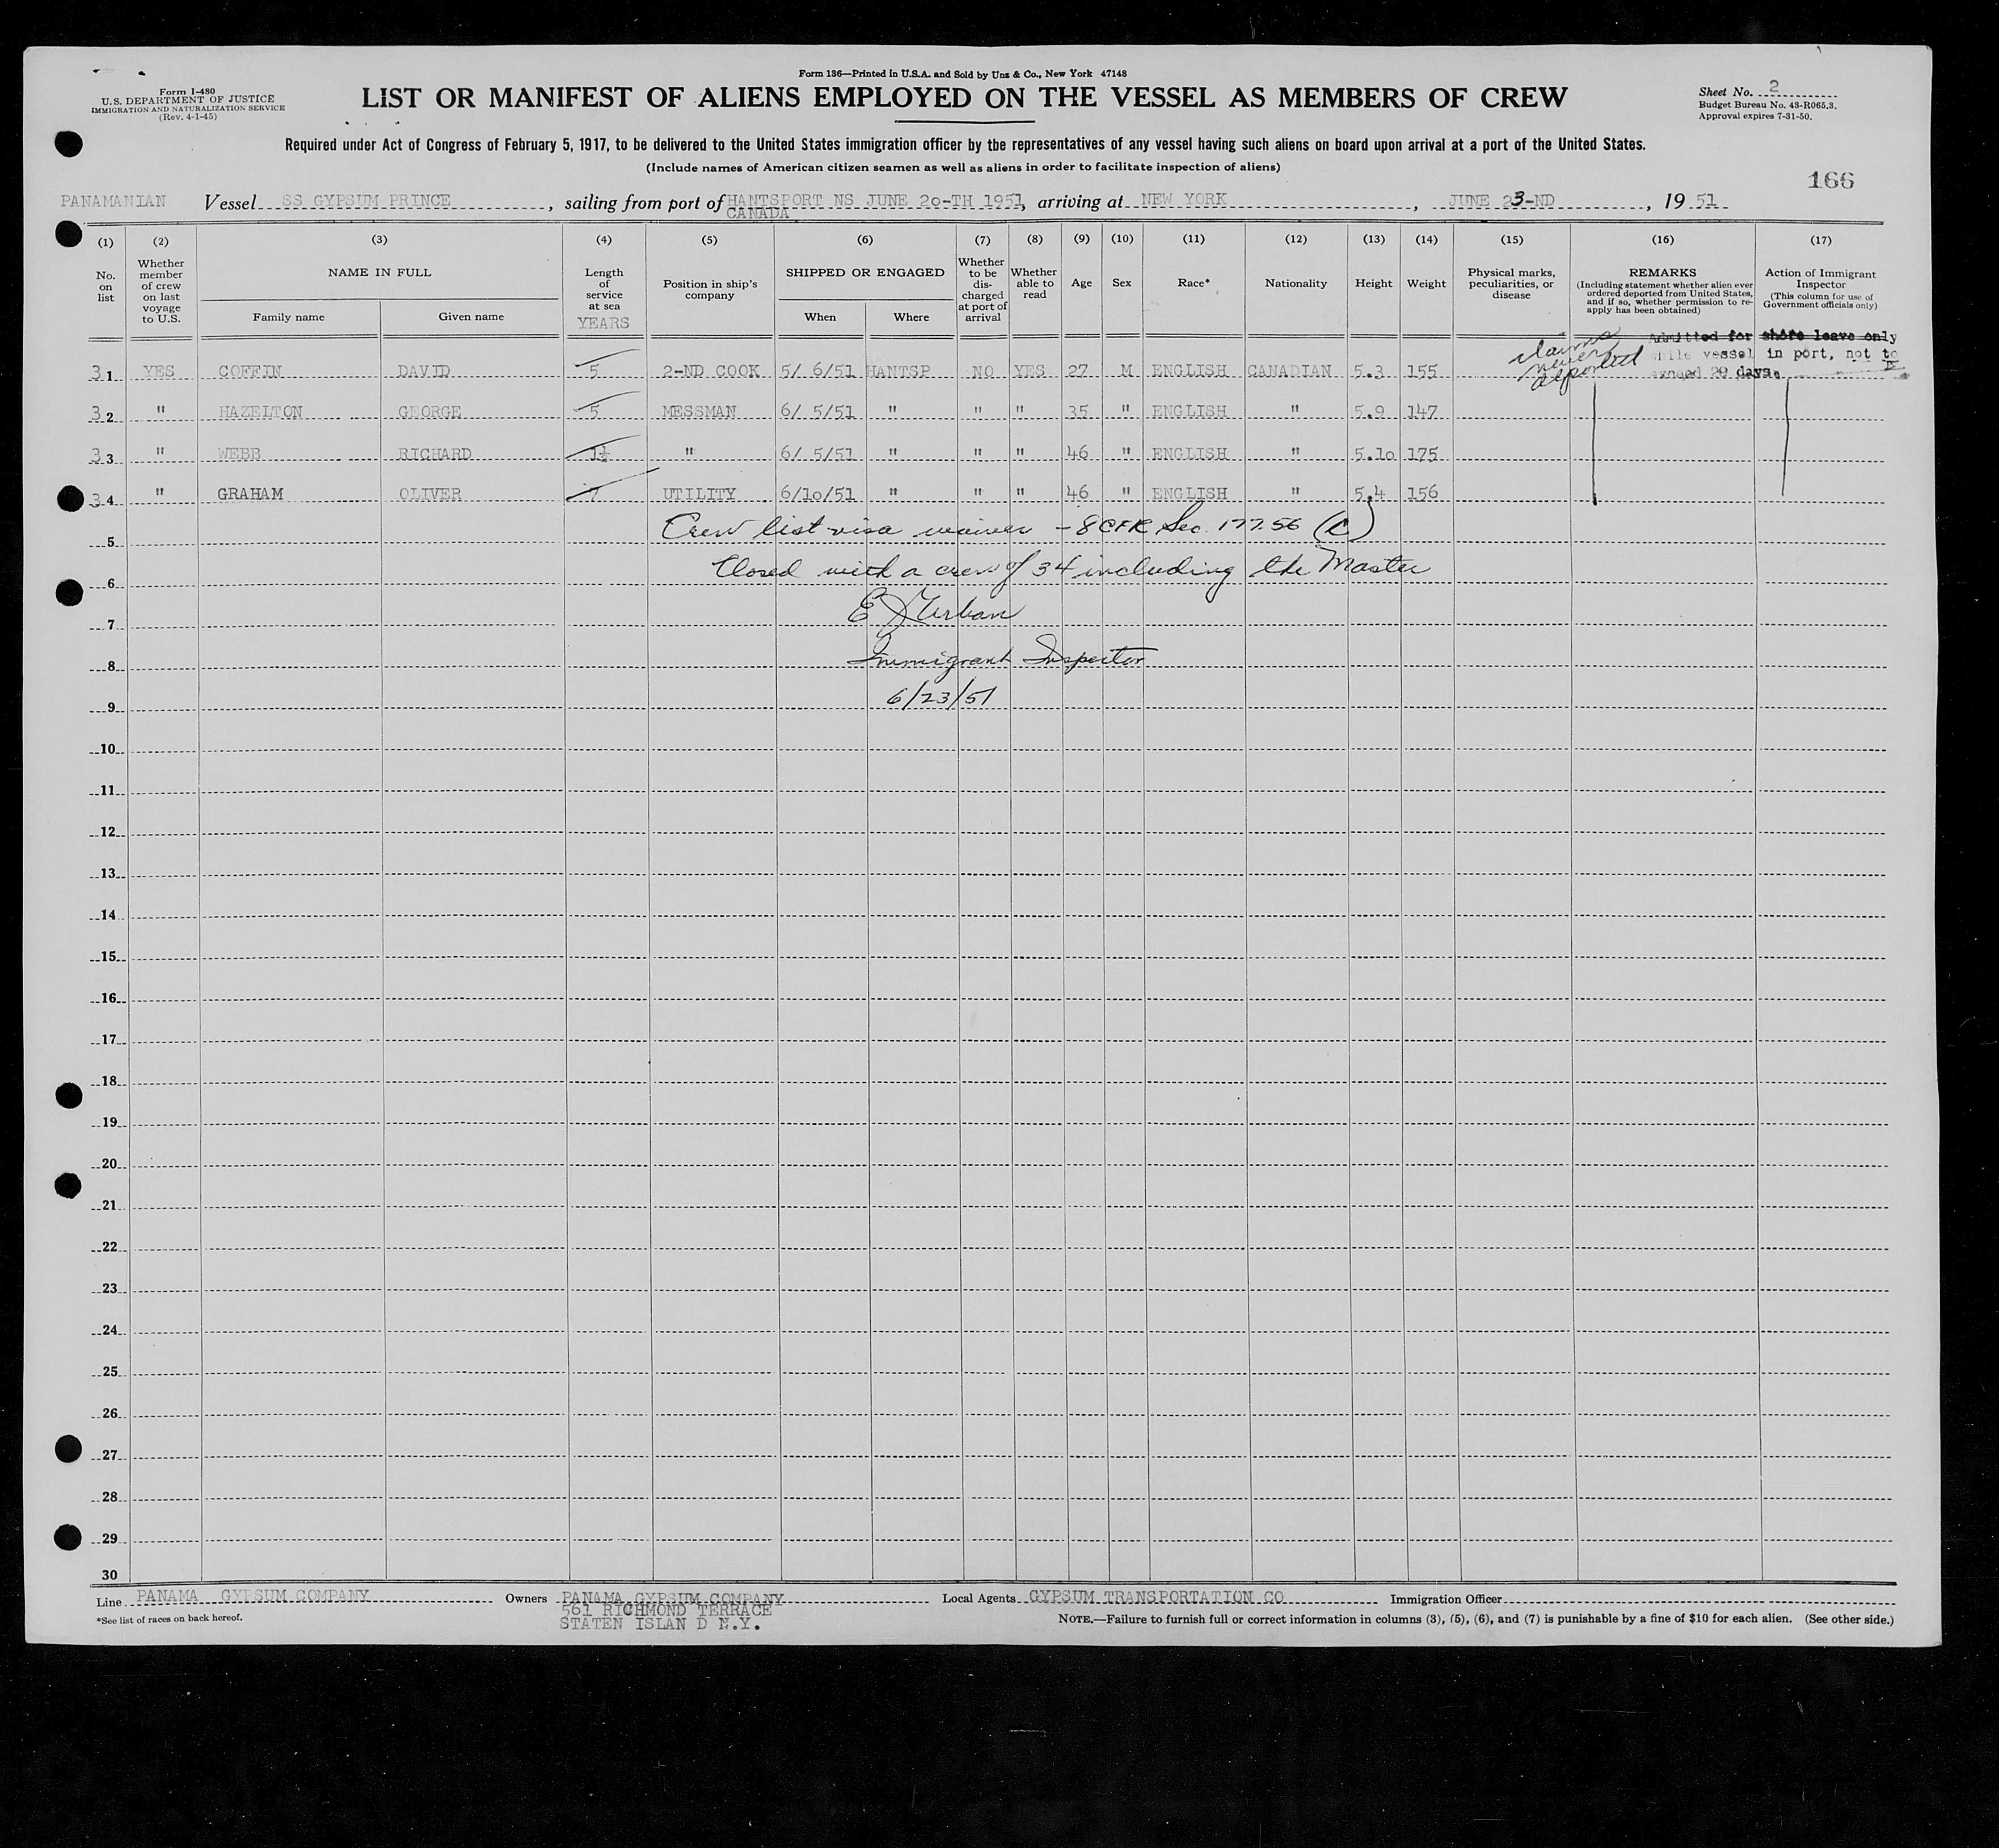 Form 136—Printed in U.S.A. and Sold by Unz & Co., New York 47148
Form I-480
U.S. DEPARTMENT OF JUSTICE
IMMIGRATION AND NATURALIZATION SERVICE
(Rev. 4-1-45)
LIST OR MANIFEST OF ALIENS EMPLOYED ON THE VESSEL AS MEMBERS OF CREW
Sheet No. 2
Budget Bureau No. 43-R065.3.
Approval expires 7-31-50.
Required under Act of Congress of February 5, 1917, to be delivered to the United States immigration officer by the representatives of any vessel having such aliens on board upon arrival at a port of the United States.
(Include names of American citizen seamen as well as aliens in order to facilitate inspection of aliens)
166
PANAMANIAN Vessel SS GYPSUM PRINCE, sailing from port of HANTSPORT NS JUNE 20-TH 1951, arriving at NEW YORK, JUNE 23-ND, 19 51
CANADA
(1) (2) (3) (4) (5) (6) (7) (8) (9) (10) (11) (12) (13) (14) (15) (16) (17)
No. on list
Whether member of crew on last voyage to U.S.
NAME IN FULL
Family name
Given name
Length of service at sea
YEARS
Position in ship's company
SHIPPED OR ENGAGED
When
Where
Whether to be discharged at port of arrival
Whether able to read
Age
Sex
Race*
Nationality
Height
Weight
Physical marks, peculiarities, or disease
REMARKS
(Including statement whether alien ever ordered deported from United States, and if so, whether permission to reapply has been obtained)
Action of Immigrant Inspector
(This column for use of Government officials only)
Admitted for shore leave only
while vessel in port, not to
exceed 29 days.
claims never deported
31 YES COFFIN DAVID 5 2-ND COOK 5/ 6/51 HANTSP NO YES 27 M ENGLISH CANADIAN 5.3 155
32 " HAZELTON GEORGE 5 MESSMAN 6/ 5/51 " " " 35 " ENGLISH " 5.9 147
33 " WEBB RICHARD 1½ " 6/ 5/51 " " " 46 " ENGLISH " 5.10 175
34 " GRAHAM OLIVER 7 UTILITY 6/10/51 " " " 46 " ENGLISH " 5.4 156
Crew list visa waiver - 8 CFR Sec. 177.56 (C)
5
Closed with a crew of 34 including the Master
6
E J Urban
7
Immigrant Inspector
8
6/23/51
9
10
11
12
13
14
15
16
17
18
19
20
21
22
23
24
25
26
27
28
29
30
Line PANAMA GYPSUM COMPANY Owners PANAMA GYPSUM COMPANY Local Agents GYPSUM TRANSPORTATION CO Immigration Officer
561 RICHMOND TERRACE
STATEN ISLAN D N.Y.
*See list of races on back hereof.
NOTE.—Failure to furnish full or correct information in columns (3), (5), (6), and (7) is punishable by a fine of $10 for each alien. (See other side.)